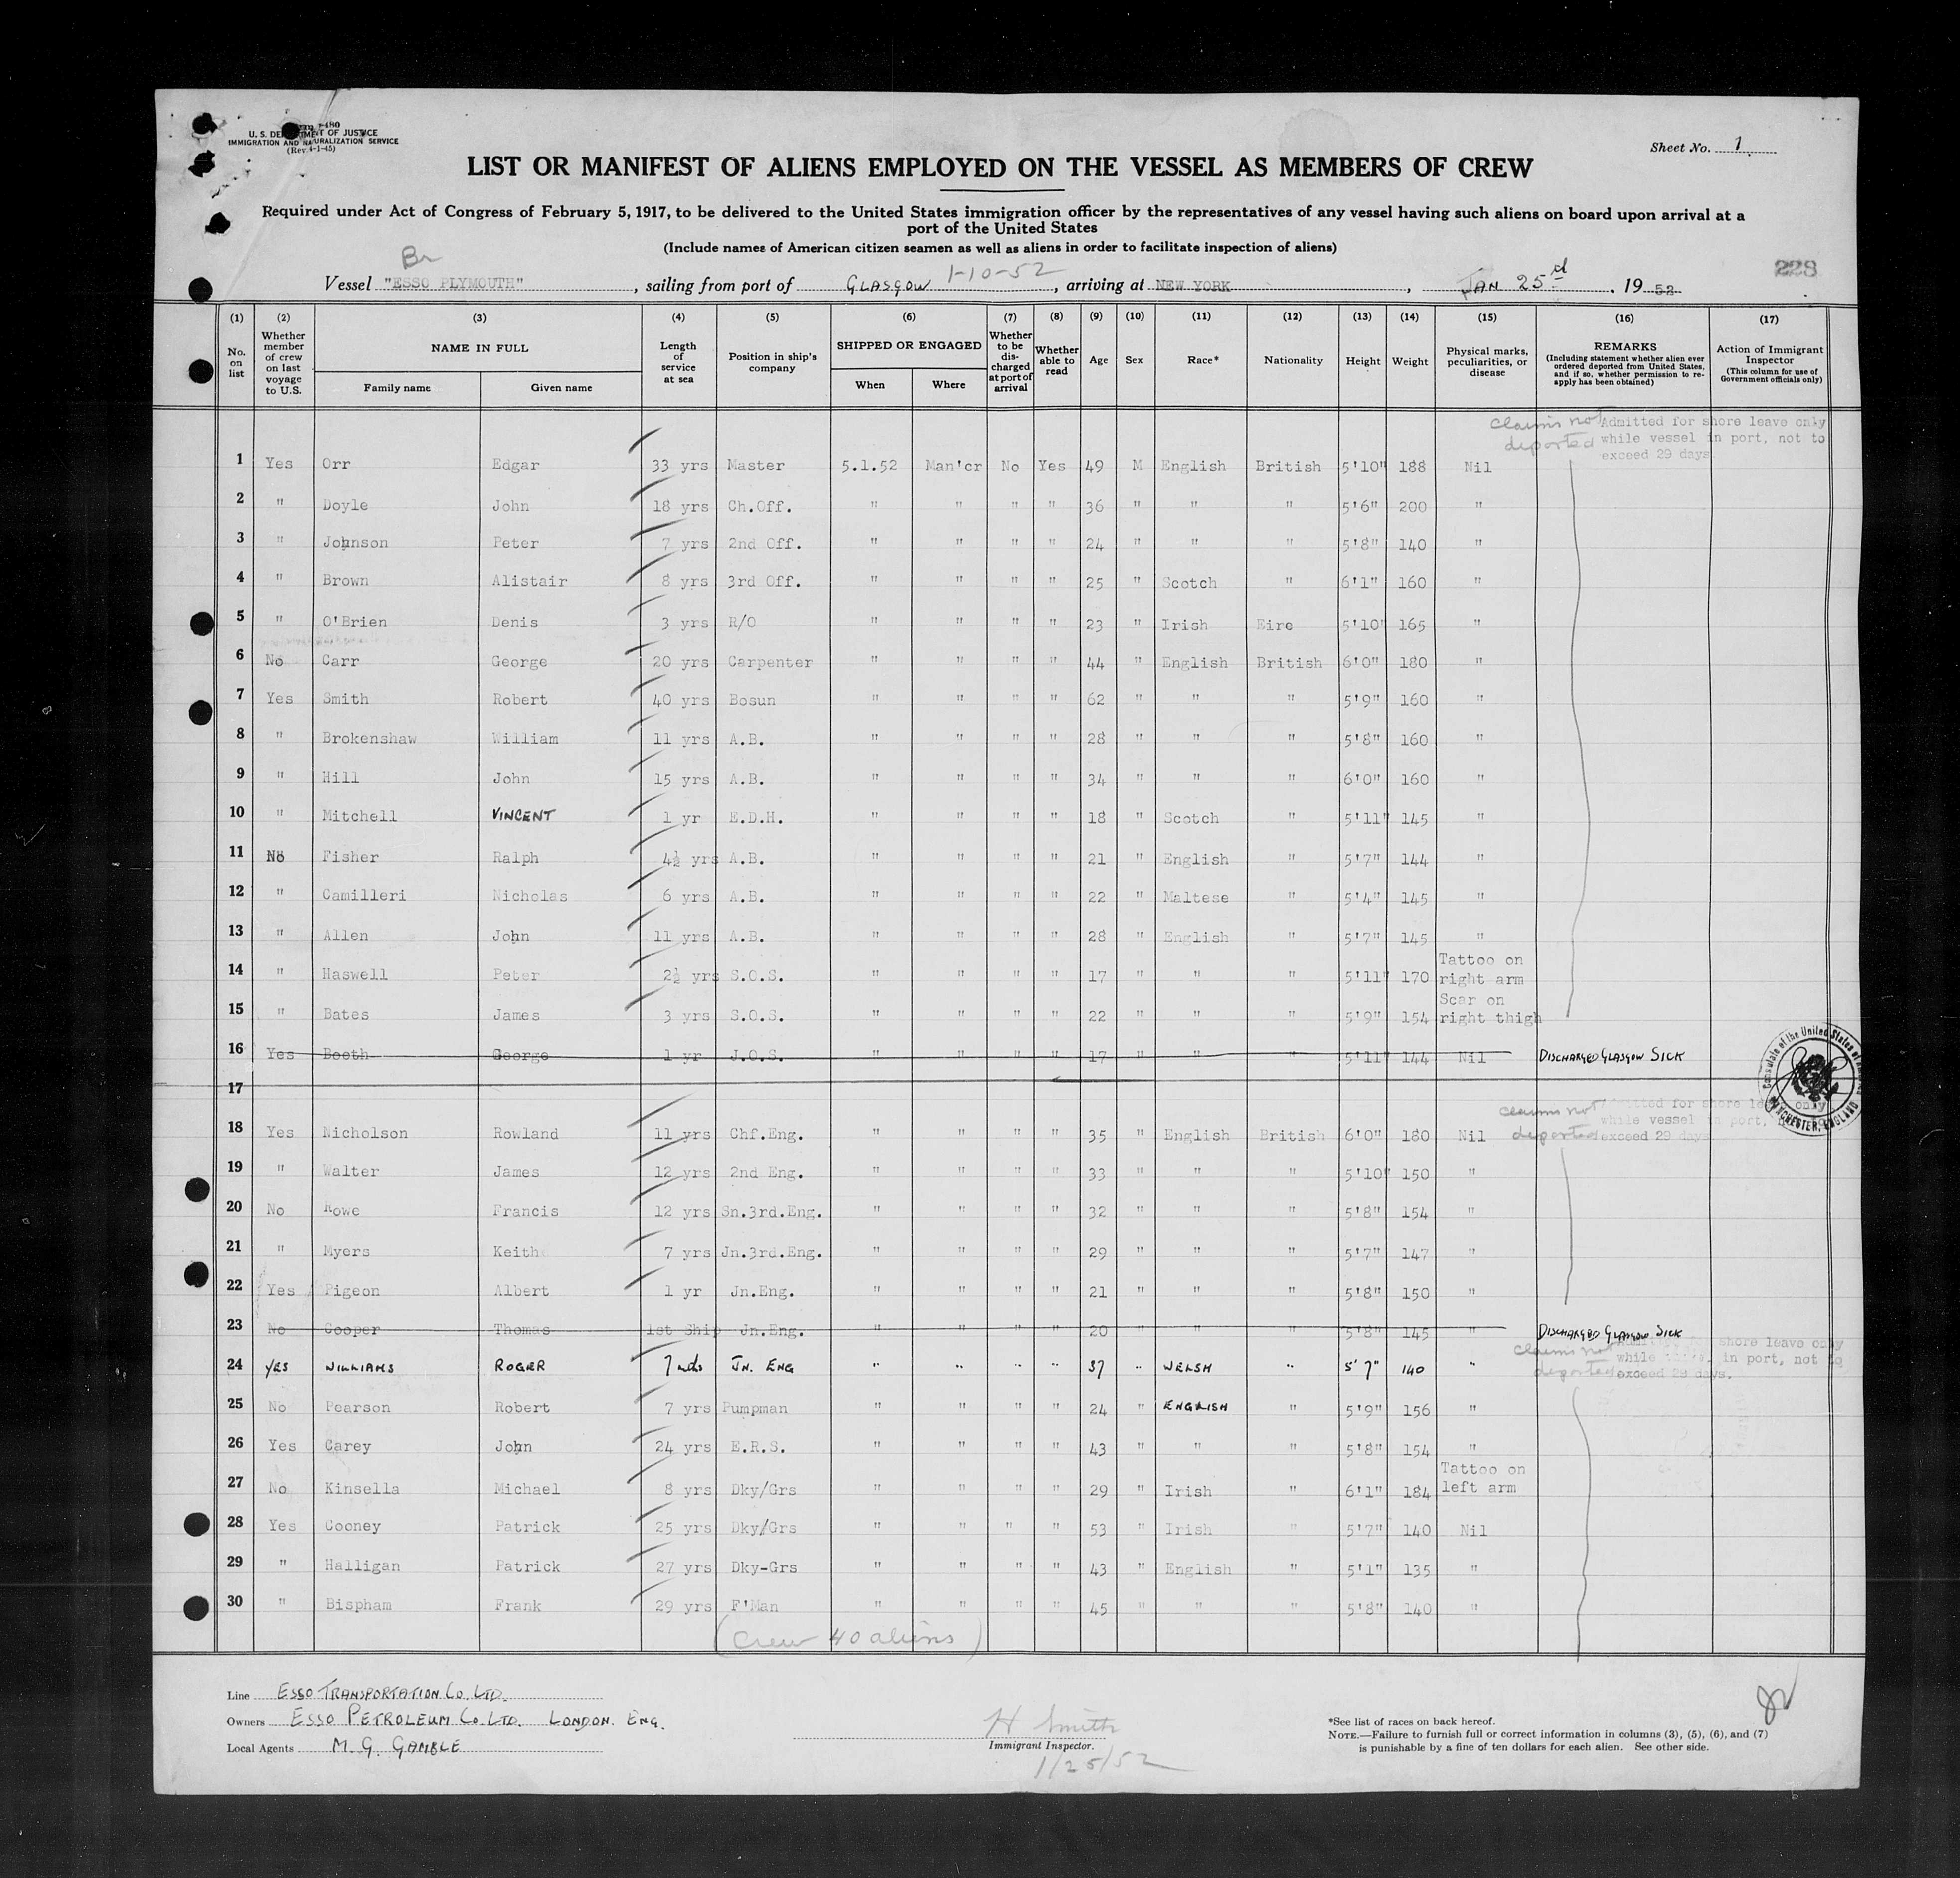 U. S. DEPARTMENT OF JUSTICE
IMMIGRATION AND NATURALIZATION SERVICE
(Rev. 4-1-45)
Sheet No. 1
LIST OR MANIFEST OF ALIENS EMPLOYED ON THE VESSEL AS MEMBERS OF CREW
Required under Act of Congress of February 5, 1917, to be delivered to the United States immigration officer by the representatives of any vessel having such aliens on board upon arrival at a
port of the United States
(Include names of American citizen seamen as well as aliens in order to facilitate inspection of aliens)
Br 1-10-52 228
Vessel "ESSO PLYMOUTH", sailing from port of GLASGOW, arriving at NEW YORK, JAN 25d, 1952
(1) (2) (3) (4) (5) (6) (7) (8) (9) (10) (11) (12) (13) (14) (15) (16) (17)
No. on list Whether member of crew on last voyage to U.S. NAME IN FULL Family name Given name Length of service at sea Position in ship's company SHIPPED OR ENGAGED When Where Whether to be discharged at port of arrival Whether able to read Age Sex Race* Nationality Height Weight Physical marks, peculiarities, or disease REMARKS (Including statement whether alien ever ordered deported from United States, and if so, whether permission to re-apply has been obtained) Action of Immigrant Inspector (This column for use of Government officials only)
claims not deported Admitted for shore leave only while vessel in port, not to exceed 29 days
1 Yes Orr Edgar 33 yrs Master 5.1.52 Man'cr No Yes 49 M English British 5'10" 188 Nil
2 " Doyle John 18 yrs Ch.Off. " " " " 36 " " " 5'6" 200 "
3 " Johnson Peter 7 yrs 2nd Off. " " " " 24 " " " 5'8" 140 "
4 " Brown Alistair 8 yrs 3rd Off. " " " " 25 " Scotch " 6'1" 160 "
5 " O'Brien Denis 3 yrs R/O " " " " 23 " Irish Eire 5'10" 165 "
6 No Carr George 20 yrs Carpenter " " " " 44 " English British 6'0" 180 "
7 Yes Smith Robert 40 yrs Bosun " " " " 62 " " " 5'9" 160 "
8 " Brokenshaw William 11 yrs A.B. " " " " 28 " " " 5'8" 160 "
9 " Hill John 15 yrs A.B. " " " " 34 " " " 6'0" 160 "
10 " Mitchell VINCENT 1 yr E.D.H. " " " " 18 " Scotch " 5'11" 145 "
11 No Fisher Ralph 4½ yrs A.B. " " " " 21 " English " 5'7" 144 "
12 " Camilleri Nicholas 6 yrs A.B. " " " " 22 " Maltese " 5'4" 145 "
13 " Allen John 11 yrs A.B. " " " " 28 " English " 5'7" 145 "
14 " Haswell Peter 2½ yrs S.O.S. " " " " 17 " " " 5'11" 170 Tattoo on right arm
15 " Bates James 3 yrs S.O.S. " " " " 22 " " " 5'9" 154 Scar on right thigh
16 Yes Booth George 1 yr J.O.S. " " " " 17 " " " 5'11" 144 Nil DISCHARGED GLASGOW SICK
17
Consulate of the United States of America MANCHESTER, ENGLAND
claims not deported Admitted for shore leave only while vessel in port, exceed 29 days
18 Yes Nicholson Rowland 11 yrs Chf.Eng. " " " " 35 " English British 6'0" 180 Nil
19 " Walter James 12 yrs 2nd Eng. " " " " 33 " " " 5'10" 150 "
20 No Rowe Francis 12 yrs Sn.3rd.Eng. " " " " 32 " " " 5'8" 154 "
21 " Myers Keith 7 yrs Jn.3rd.Eng. " " " " 29 " " " 5'7" 147 "
22 Yes Pigeon Albert 1 yr Jn.Eng. " " " " 21 " " " 5'8" 150 "
23 No Cooper Thomas 1st Ship Jn.Eng. " " " " 20 " " " 5'8" 145 " DISCHARGED GLASGOW SICK
claims not deported shore leave only while in port, not to exceed 29 days.
24 YES WILLIAMS ROGER 7 JN. ENG " " " " 37 " WELSH " 5'7" 140 "
25 No Pearson Robert 7 yrs Pumpman " " " " 24 " ENGLISH " 5'9" 156 "
26 Yes Carey John 24 yrs E.R.S. " " " " 43 " " " 5'8" 154 "
27 No Kinsella Michael 8 yrs Dky/Grs " " " " 29 " Irish " 6'1" 184 Tattoo on left arm
28 Yes Cooney Patrick 25 yrs Dky/Grs " " " " 53 " Irish " 5'7" 140 Nil
29 " Halligan Patrick 27 yrs Dky-Grs " " " " 43 " English " 5'1" 135 "
30 " Bispham Frank 29 yrs F'Man " " " " 45 " " " 5'8" 140 "
(Crew 40 aliens)
Line ESSO TRANSPORTATION CO. LTD.
Owners ESSO PETROLEUM CO. LTD. LONDON. ENG.
Local Agents M. G. GAMBLE
H Smith
Immigrant Inspector.
1/25/52
*See list of races on back hereof.
NOTE.—Failure to furnish full or correct information in columns (3), (5), (6), and (7)
is punishable by a fine of ten dollars for each alien. See other side.